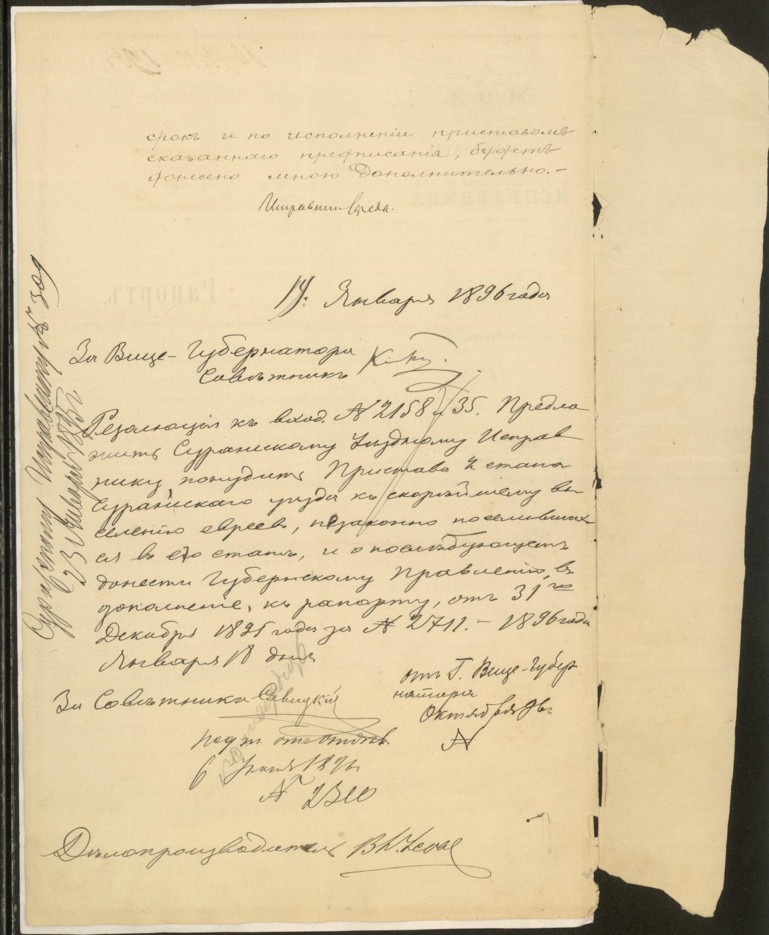 срокъ и по исполненіи приставомъ
сказаннаго предписанія, будетъ
донесено мною дополнительно.—
19 Января 1896 года
За Вице-Губернатора
Совѣтникъ
Резолюція къ вход. № 2158 35. Предло
жить Суражскому Уѣздному Исправ
нику понудить Пристава 2 стана
Суражскаго уѣзда къ скорѣйшему вы
селенію евреевъ, незаконно поселивших
ся въ его станѣ, и о послѣдующемъ
донести Губернскому Правленію, въ
дополненіе, къ рапорту, отъ 31го
Декабря 1895 года за № 2711.— 1896 года
Января 18 дня
За Совѣтника Савицкій
отъ Г. Вице-Губер
натора
Октября
№
6 1896
№ 2310
Дѣлопроизводитель
Суражскому Исправнику № 309
23 Января 1896 г.
Рапортъ